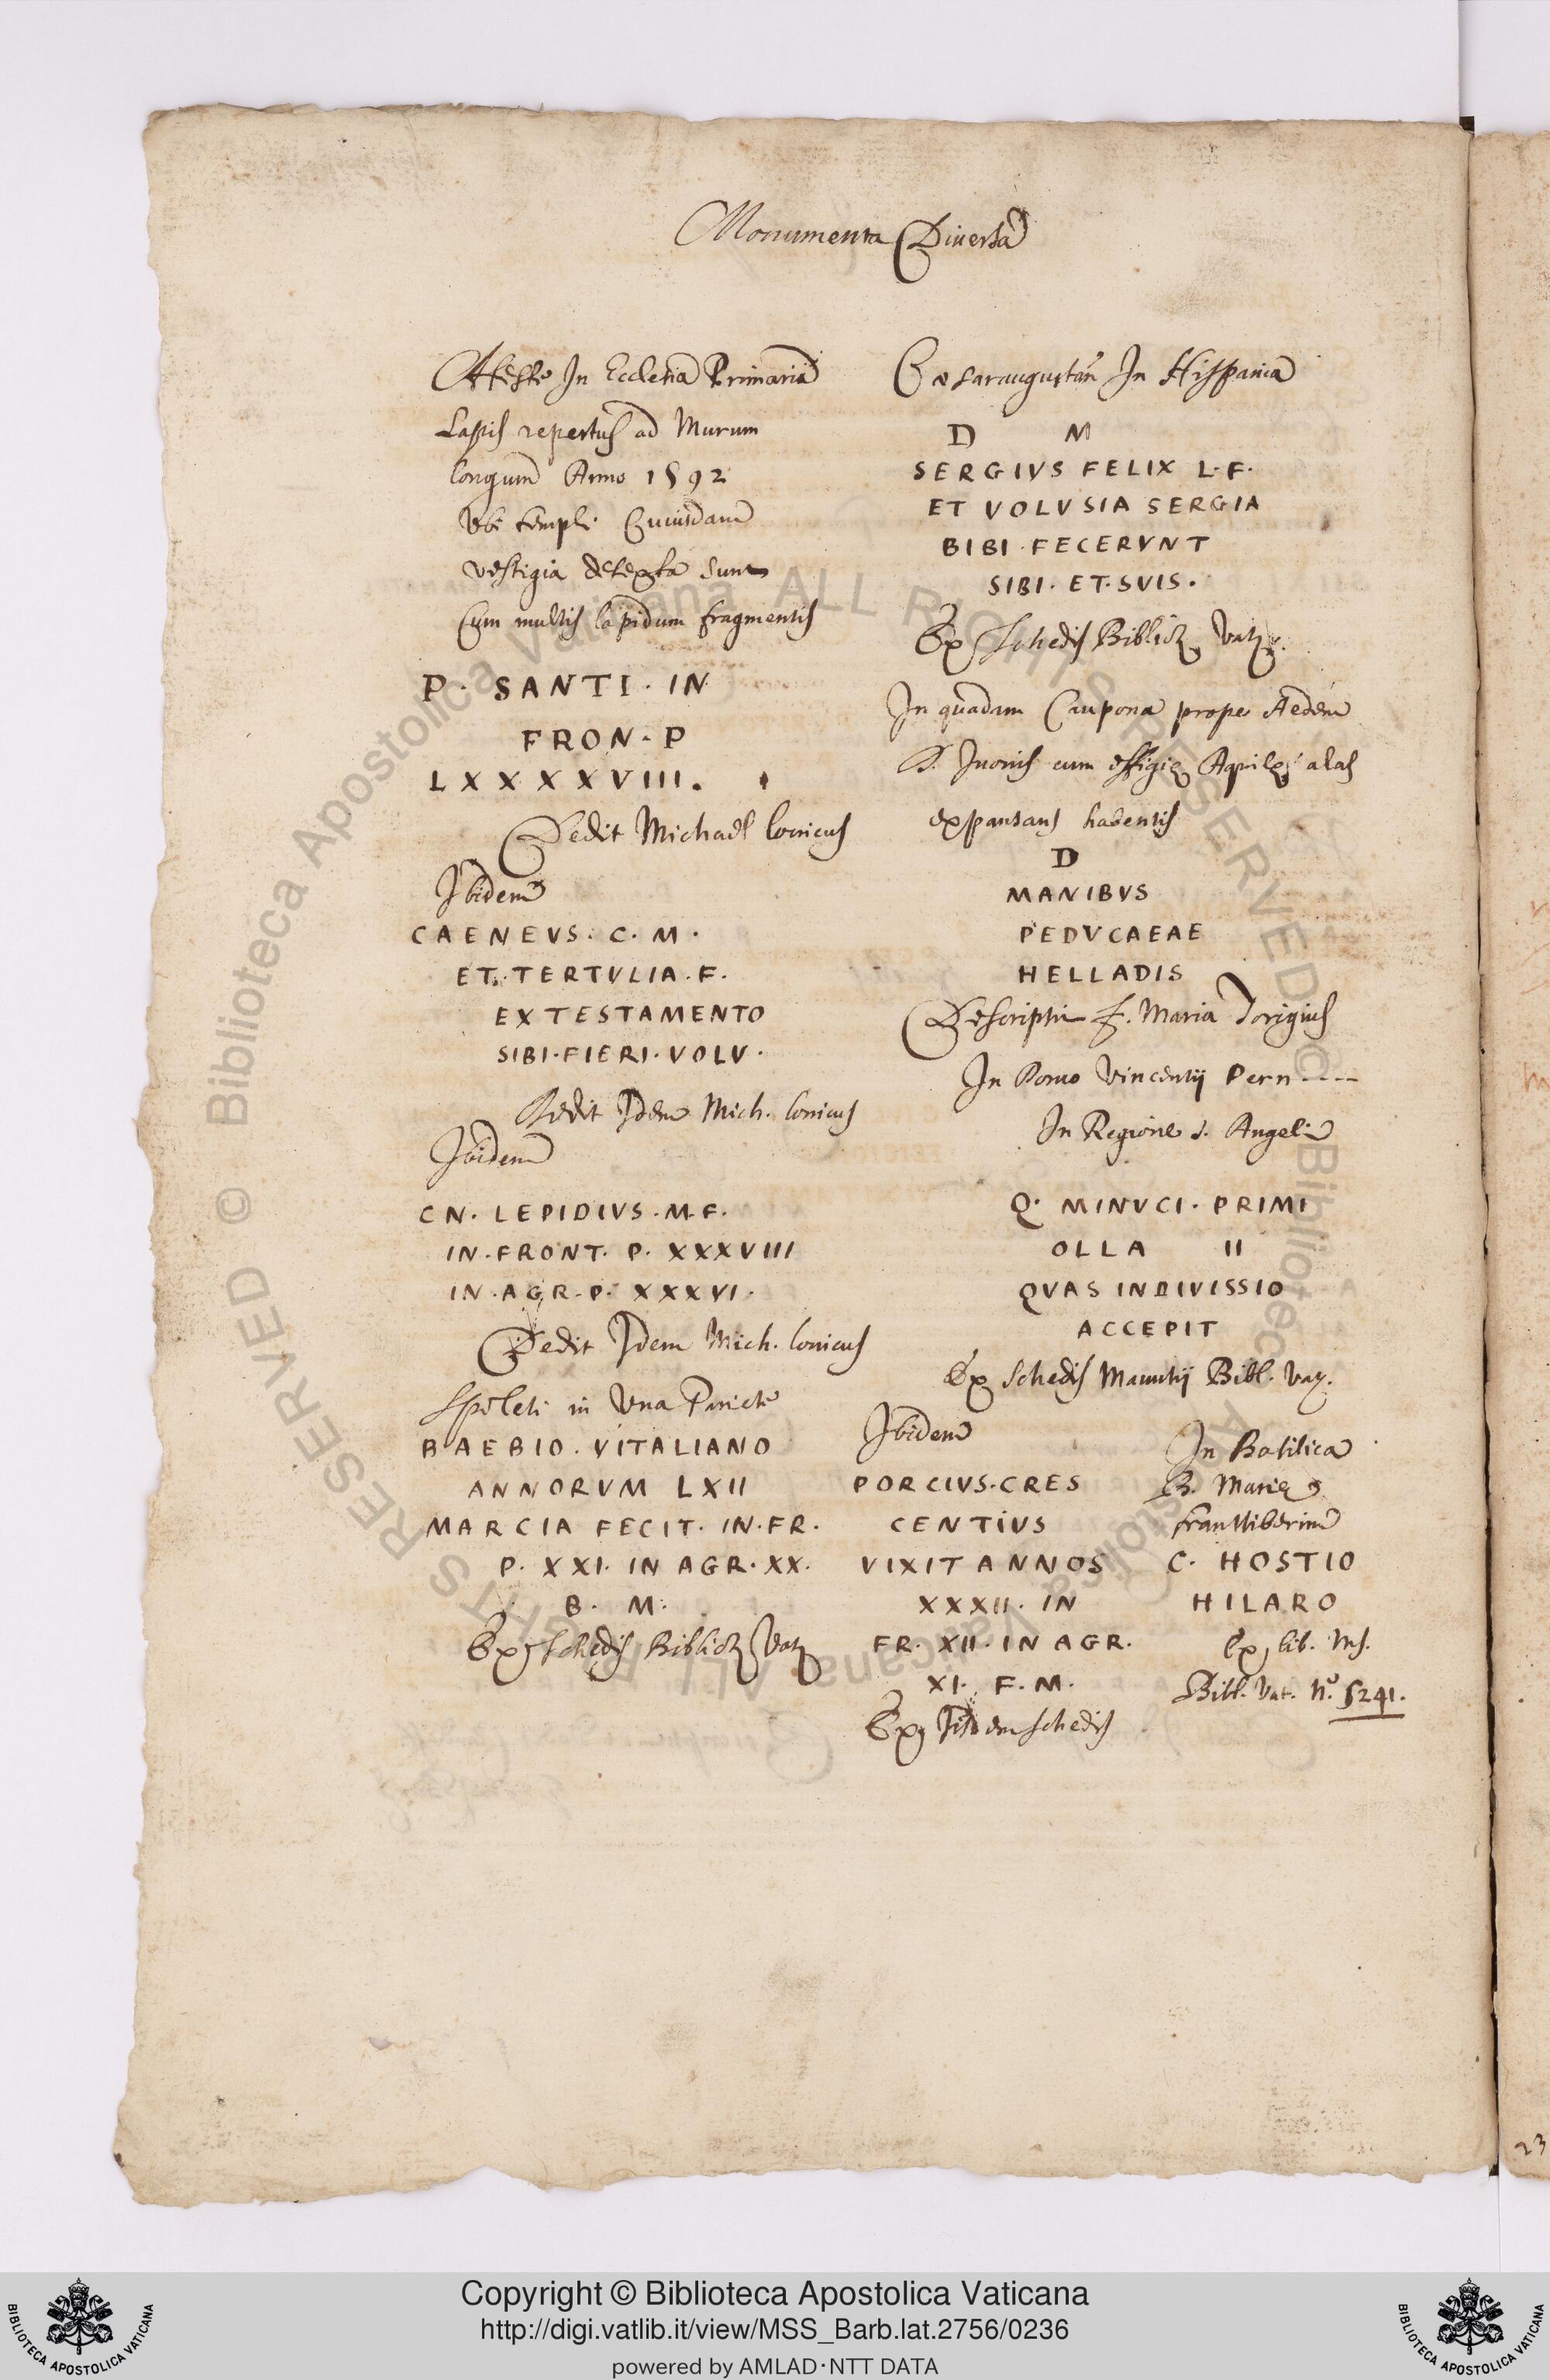 Monumenta Diversa
Atheste In Ecclesia Primaria
Lapis repertus ad Murum
longum Anno 1592
Ubi templi Cuiusdam
vestigia detecta sunt
Cum multis lapidum fragmentis
P. SANTI. IN
FRON. P
LXXXXVIII.
Dedit Michael lonicus
Ibidem
CAENEVS. C. M.
ET. TERTVLIA. F.
EX TESTAMENTO
SIBI. FIERI. VOLV.
Dedit Idem Mich. lonicus
Ibidem
CN. LEPIDIVS. M. F.
IN. FRONT. P. XXXVIII
IN. AGR. P. XXXVI.
Dedit Idem Mich. lonicus
Spoleti in Una Pariete
BAEBIO. VITALIANO
ANNORVM LXII
MARCIA FECIT. IN. FR.
P. XXI. IN AGR. XX.
B. M.
Ex Schedis Biblioth Vat
Cæsaraugustæ In Hispania
D M
SERGIVS FELIX L. F.
ET VOLVSIA SERGIA
BIBI. FECERVNT
SIBI. ET. SVIS.
Ex Schedis Biblioth Vat.
In quadam Caupona prope Aedem
S. Iuonis cum effigie Aquilæ alas
expansas habentis
D
MANIBVS
PEDVCAEAE
HELLADIS
Descripsit F. Maria Torigius
In Domo Vincentij Pern----
In Regione s. Angeli
Q. MINVCI. PRIMI
OLLA II
QVAS INDIVISSIO
ACCEPIT
Ex Schedis Manutij Bibl. Vat.
Ibidem
PORCIVS. CRES
CENTIVS
VIXIT ANNOS
XXXII. IN
FR. XII. IN AGR.
XI. F. M.
Ex Schedis
In Basilica
B. Mariæ
transtiberim
C. HOSTIO
HILARO
Ex lib. Ms.
Bibl. Vat. No. 5241.
23
© Biblioteca Apostolica Vaticana ALL RIGHTS RESERVED
© Biblioteca Apostolica Vaticana ALL RIGHTS RESERVED
Copyright © Biblioteca Apostolica Vaticana
http://digi.vatlib.it/view/MSS_Barb.lat.2756/0236
powered by AMLAD·NTT DATA
BIBLIOTECA APOSTOLICA VATICANA
BIBLIOTECA APOSTOLICA VATICANA